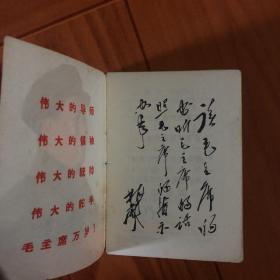 伟大的导师
伟大的领袖
伟大的统帅
伟大的舵手
毛主席万岁！
读毛主席的
书听毛主席的话
照毛主席的指示
办事
林彪